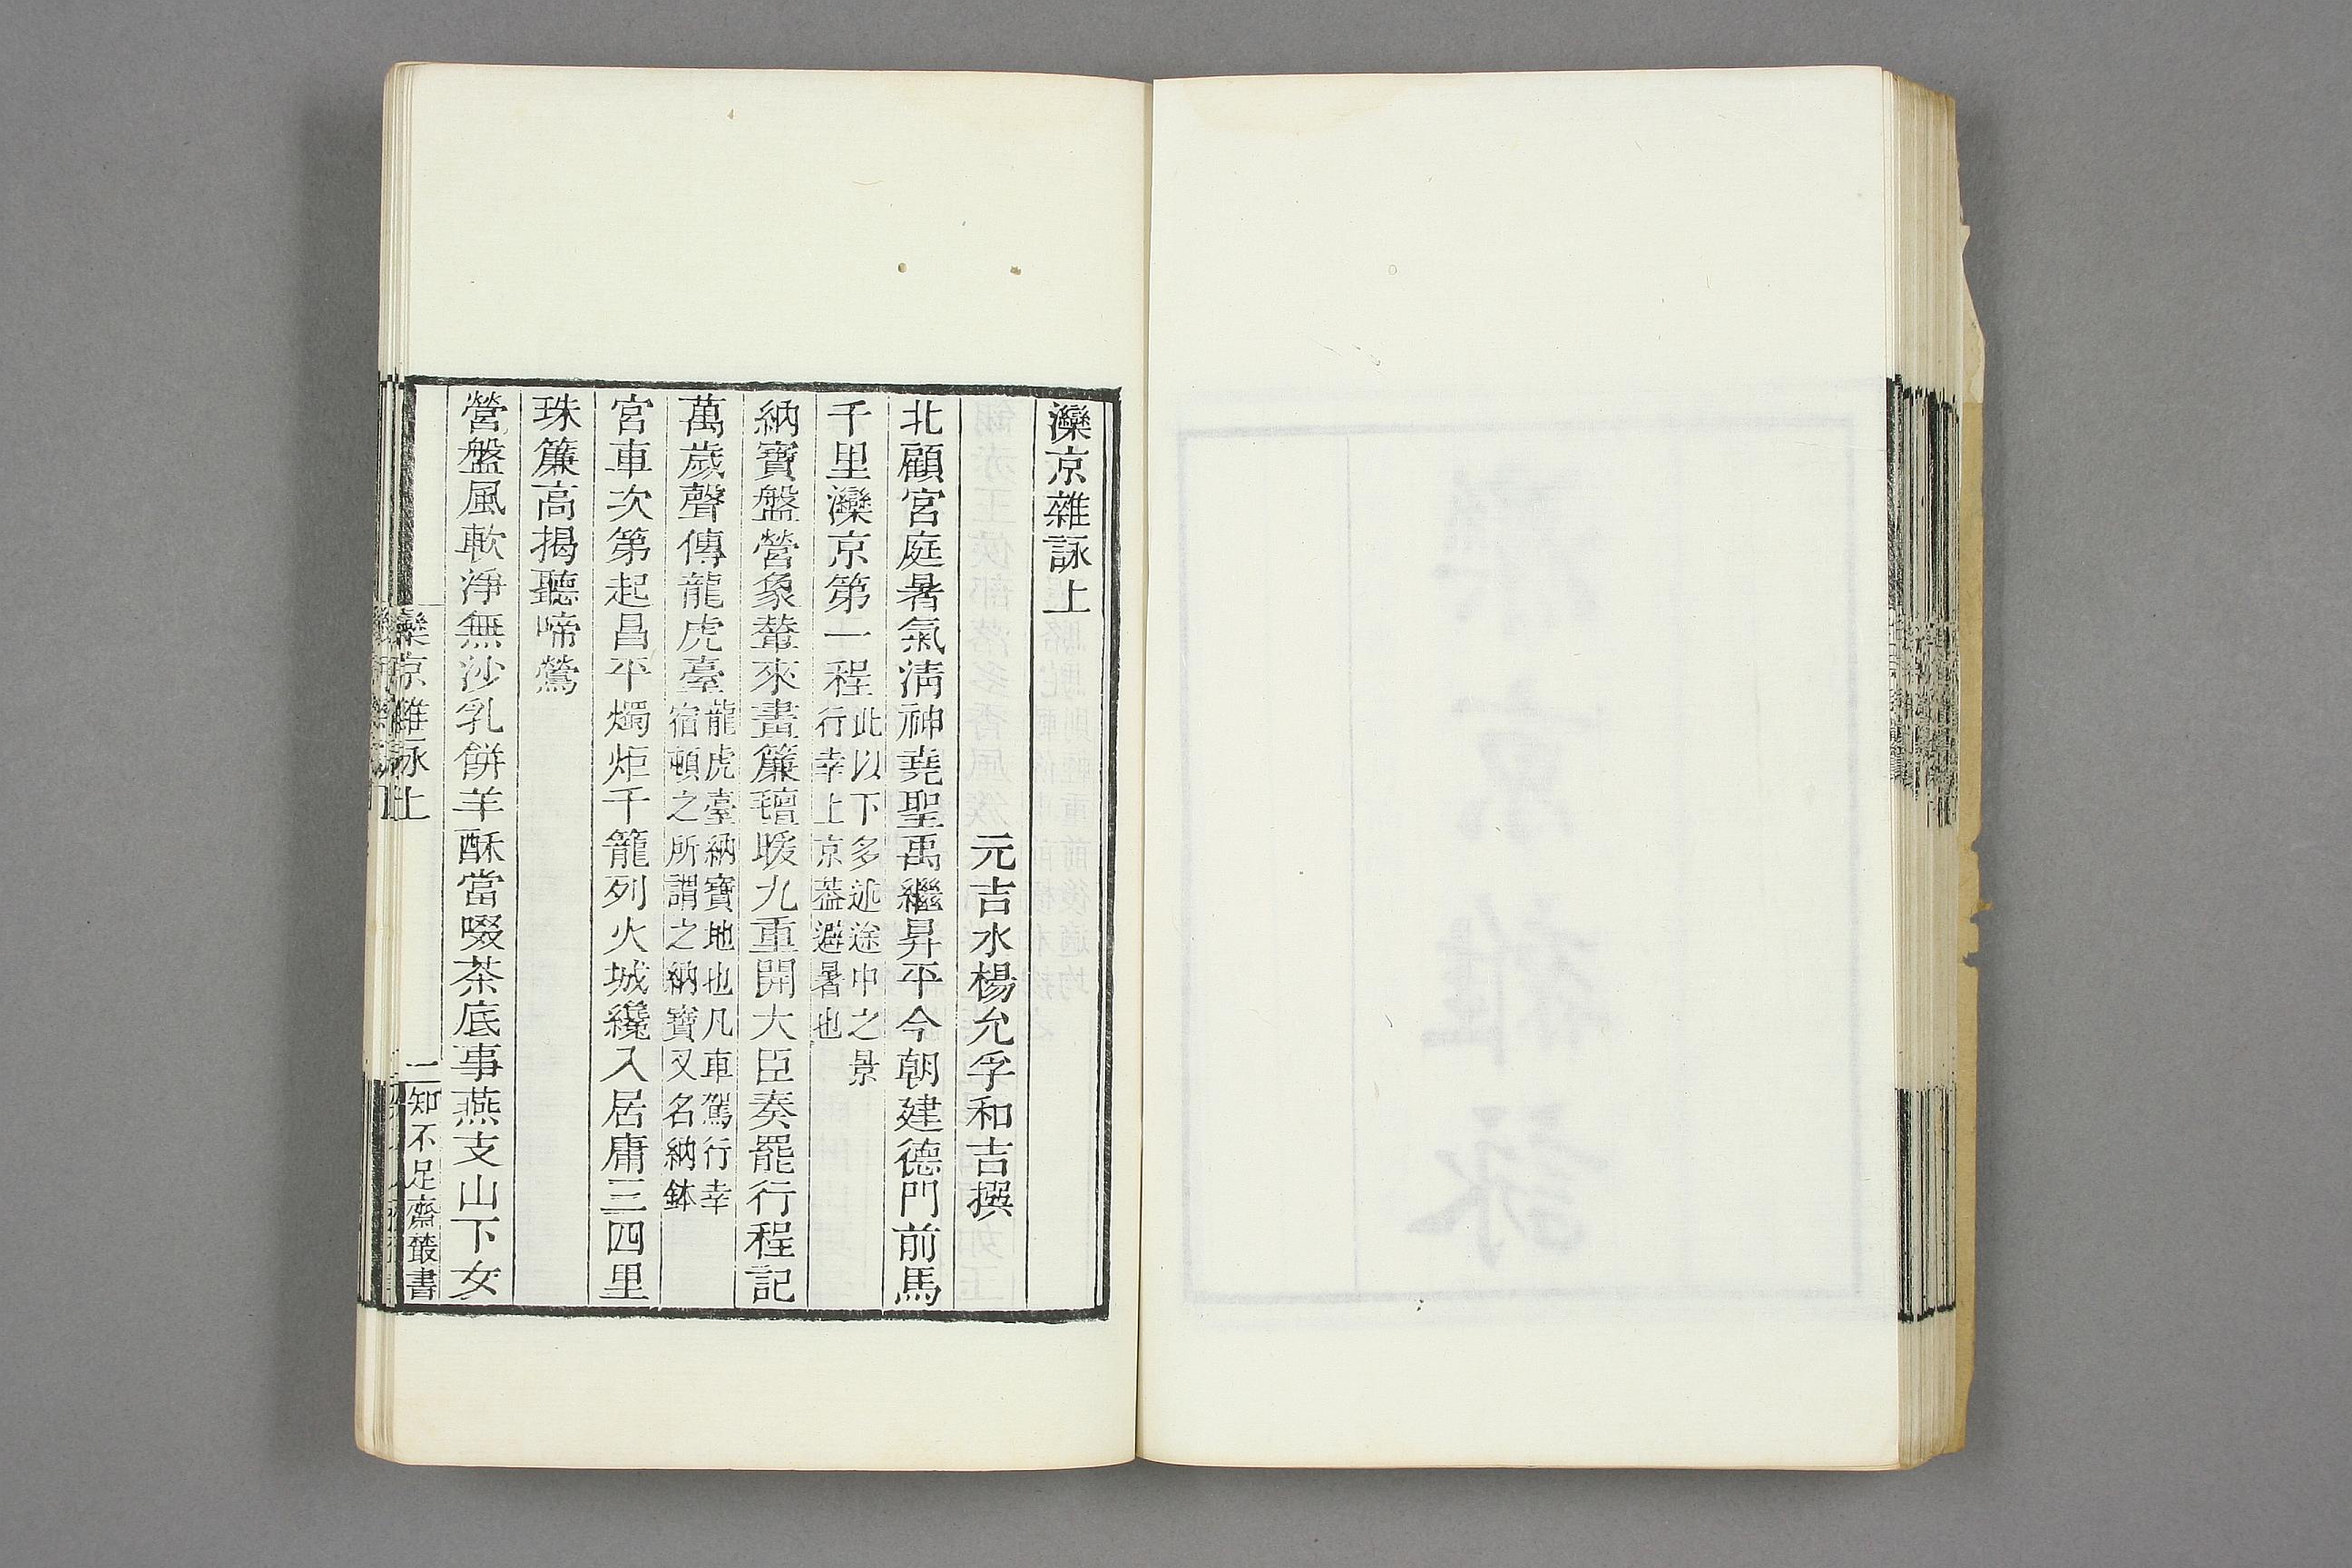 灤京雜詠上
元吉水楊允孚和吉撰
北顧宮庭暑氣清神堯聖禹繼昇平今朝建德門前馬
千里灤京第一程此以下多述途中之景行幸上京葢避暑也
納寶盤營象輦來畫簾氊暖九重開大臣奏罷行程記
萬歲聲傳龍虎臺龍虎臺納寶地也凡車駕行幸宿頓之所謂之納寶又名納鉢
宮車次第起昌平燭炬千籠列火城纔入居庸三四里
珠簾高揭聽啼鶯
營盤風軟淨無沙乳餅羊酥當啜茶底事燕支山下女
灤京雜詠上
一
知不足齋叢書